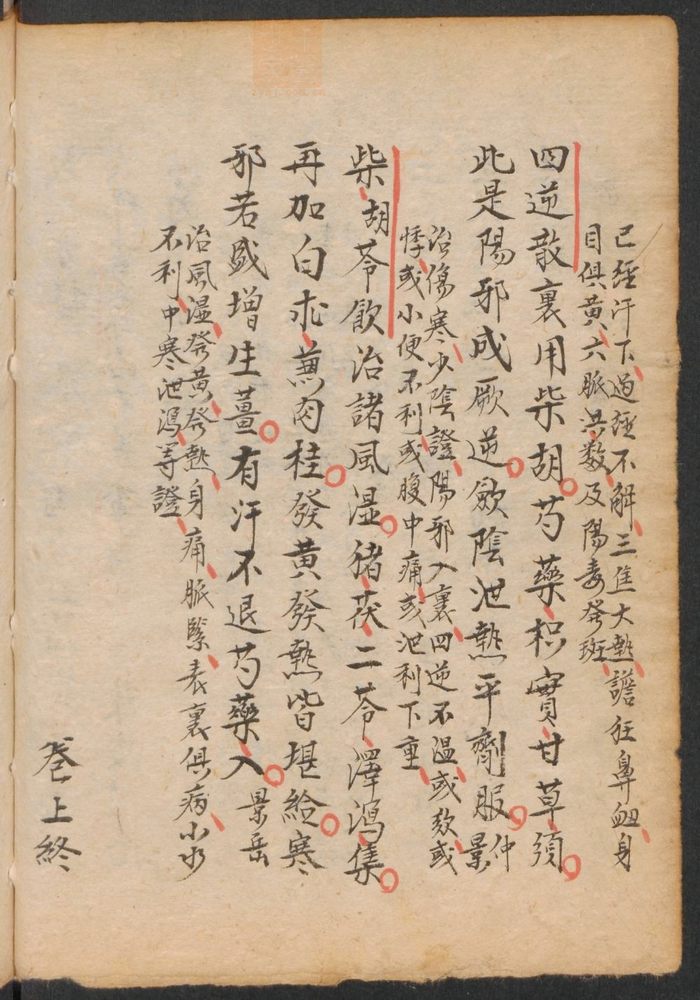 已經汗下過經不解三焦大熱譫狂鼻衄身
目俱黃六脈洪数及陽毒發斑
四逆散裏用柴胡芍藥枳實甘草須
此是陽邪成厥逆斂陰泄熱平劑服仲景
治傷寒少陰證陽邪入裏四逆不温或欬或
悸或小便不利或腹中痛或泄利下重
柴胡苓飲治諸風湿猪茯二苓澤瀉集
再加白朮兼肉桂發黃發熱皆堪給寒
邪若盛增生薑有汗不退芍藥入景岳
治風湿發黃發熱身痛脈緊表裏俱病小水
不利中寒泄瀉等證
卷上終